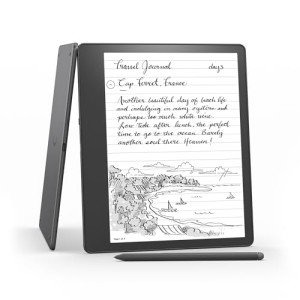 Travel Journal days
Cap Ferret, France
Another beautiful day of beach life
and indulging in many oysters and
perhaps too much white wine.
Low Tide after lunch, the perfect
time to go to the ocean. Barely
another soul there. Heaven!